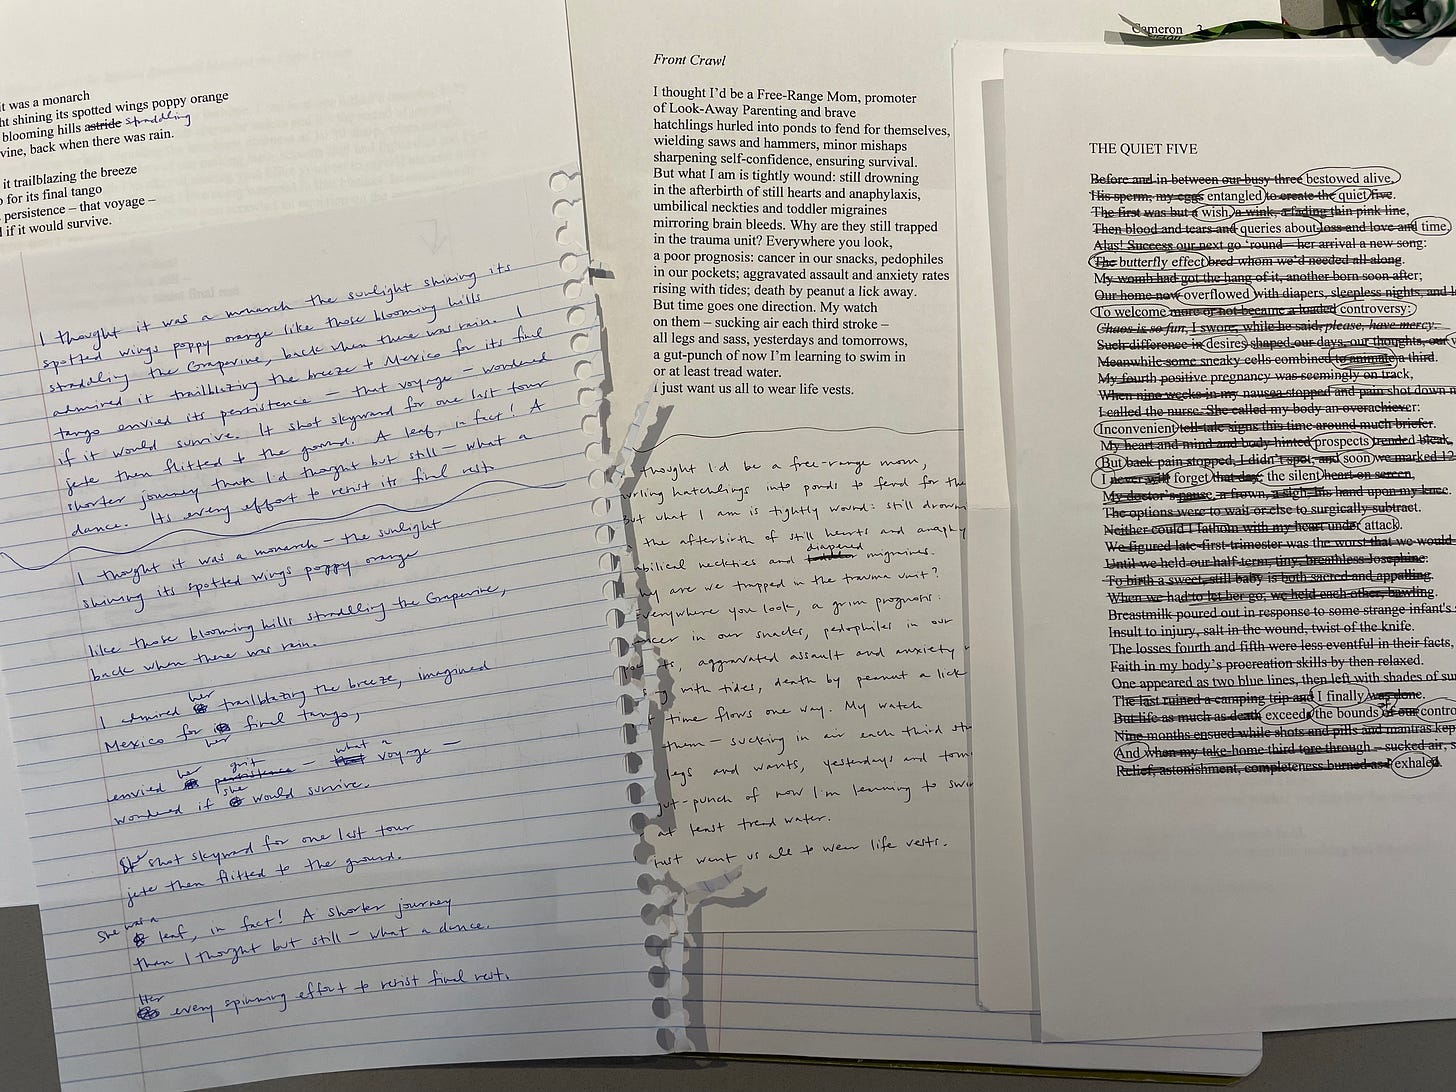 it was a monarch
shining its spotted wings poppy orange
blooming hills astride straddling
vine, back when there was rain.
it trailblazing the breeze
for its final tango
persistence – that voyage –
if it would survive.
I thought it was a monarch the sunlight shining its
spotted wings poppy orange like those blooming hills
straddling the Grapevine, back when there was rain. I
admired it trailblazing the breeze to Mexico for its final
tango envied its persistence – that voyage – wondered
if it would survive. It shot skyward for one last tour
jete then flitted to the ground. A leaf, in fact! A
shorter journey than I'd thought but still – what a
dance. Its every effort to resist its final rest.
I thought it was a monarch – the sunlight
shining its spotted wings poppy orange
like those blooming hills straddling the Grapevine,
back when there was rain.
I admired her trailblazing the breeze, imagined
Mexico for her final tango,
envied her persistence grit – that what a voyage –
wondered if she would survive.
She shot skyward for one last tour
jete then flitted to the ground.
She was a leaf, in fact! A shorter journey
than I thought but still – what a dance.
Her every spinning effort to resist final rest.
Cameron 3
Front Crawl
I thought I'd be a Free-Range Mom, promoter
of Look-Away Parenting and brave
hatchlings hurled into ponds to fend for themselves,
wielding saws and hammers, minor mishaps
sharpening self-confidence, ensuring survival.
But what I am is tightly wound: still drowning
in the afterbirth of still hearts and anaphylaxis,
umbilical neckties and toddler migraines
mirroring brain bleeds. Why are they still trapped
in the trauma unit? Everywhere you look,
a poor prognosis: cancer in our snacks, pedophiles
in our pockets; aggravated assault and anxiety rates
rising with tides; death by peanut a lick away.
But time goes one direction. My watch
on them – sucking air each third stroke –
all legs and sass, yesterdays and tomorrows,
a gut-punch of now I'm learning to swim in
or at least tread water.
I just want us all to wear life vests.
thought I'd be a free-range mom,
hatchlings into ponds to fend for
But what I am is tightly wound: still
the afterbirth of still hearts and
neckties and diapered migraines.
are we trapped in the trauma unit?
Everywhere you look, a grim prognosis:
in our snacks, pedophiles in our
aggravated assault and anxiety
with tides, death by peanut a lick
time flows one way. My watch
them – sucking in air each third
legs and wants, yesterdays and
gut-punch of now I'm learning to
at least tread water.
just want us all to wear life vests.
THE QUIET FIVE
Before and in between our busy three bestowed alive,
His sperm, my eggs entangled to create the quiet five.
The first was but a wish, a wink, a fading thin pink line,
Then blood and tears and queries about loss and love and time,
Alas! Success our next go 'round – her arrival a new song:
The butterfly effect bred whom we'd needed all along.
My womb had got the hang of it, another born soon after;
Our home now overflowed with diapers, sleepless nights, and
To welcome more or not became a loaded controversy:
Chaos is so fun, I swore, while he said, please, have mercy.
Such difference in desires shaped our days, our thoughts, our
Meanwhile some sneaky cells combined to animate a third.
My fourth positive pregnancy was seemingly on track,
When nine weeks in my nausea stopped and pain shot down
I called the nurse. She called my body an overachiever:
Inconvenient tell-tale signs this time around much briefer.
My heart and mind and body hinted prospects trended bleak,
But back pain stopped, I didn't spot, and soon we marked 12
I never will forget that day: the silent heart on screen,
My doctor's pause, a frown, a sigh, his hand upon my knee.
The options were to wait or else to surgically subtract.
Neither could I fathom with my heart under attack.
We figured late-first-trimester was the worst that we would
Until we held our half-term, tiny, breathless Josephine.
To birth a sweet, still baby is both sacred and appalling.
When we had to let her go, we held each other, bawling.
Breastmilk poured out in response to some strange infant's
Insult to injury, salt in the wound, twist of the knife.
The losses fourth and fifth were less eventful in their facts,
Faith in my body's procreation skills by then relaxed.
One appeared as two blue lines, then left with shades of
The last ruined a camping trip and I finally was done.
But life as much as death exceeds the bounds of our
Nine months ensued while shots and pills and mantras
And when my take-home third tore through – sucked air,
Relief, astonishment, completeness burned as I exhaled.